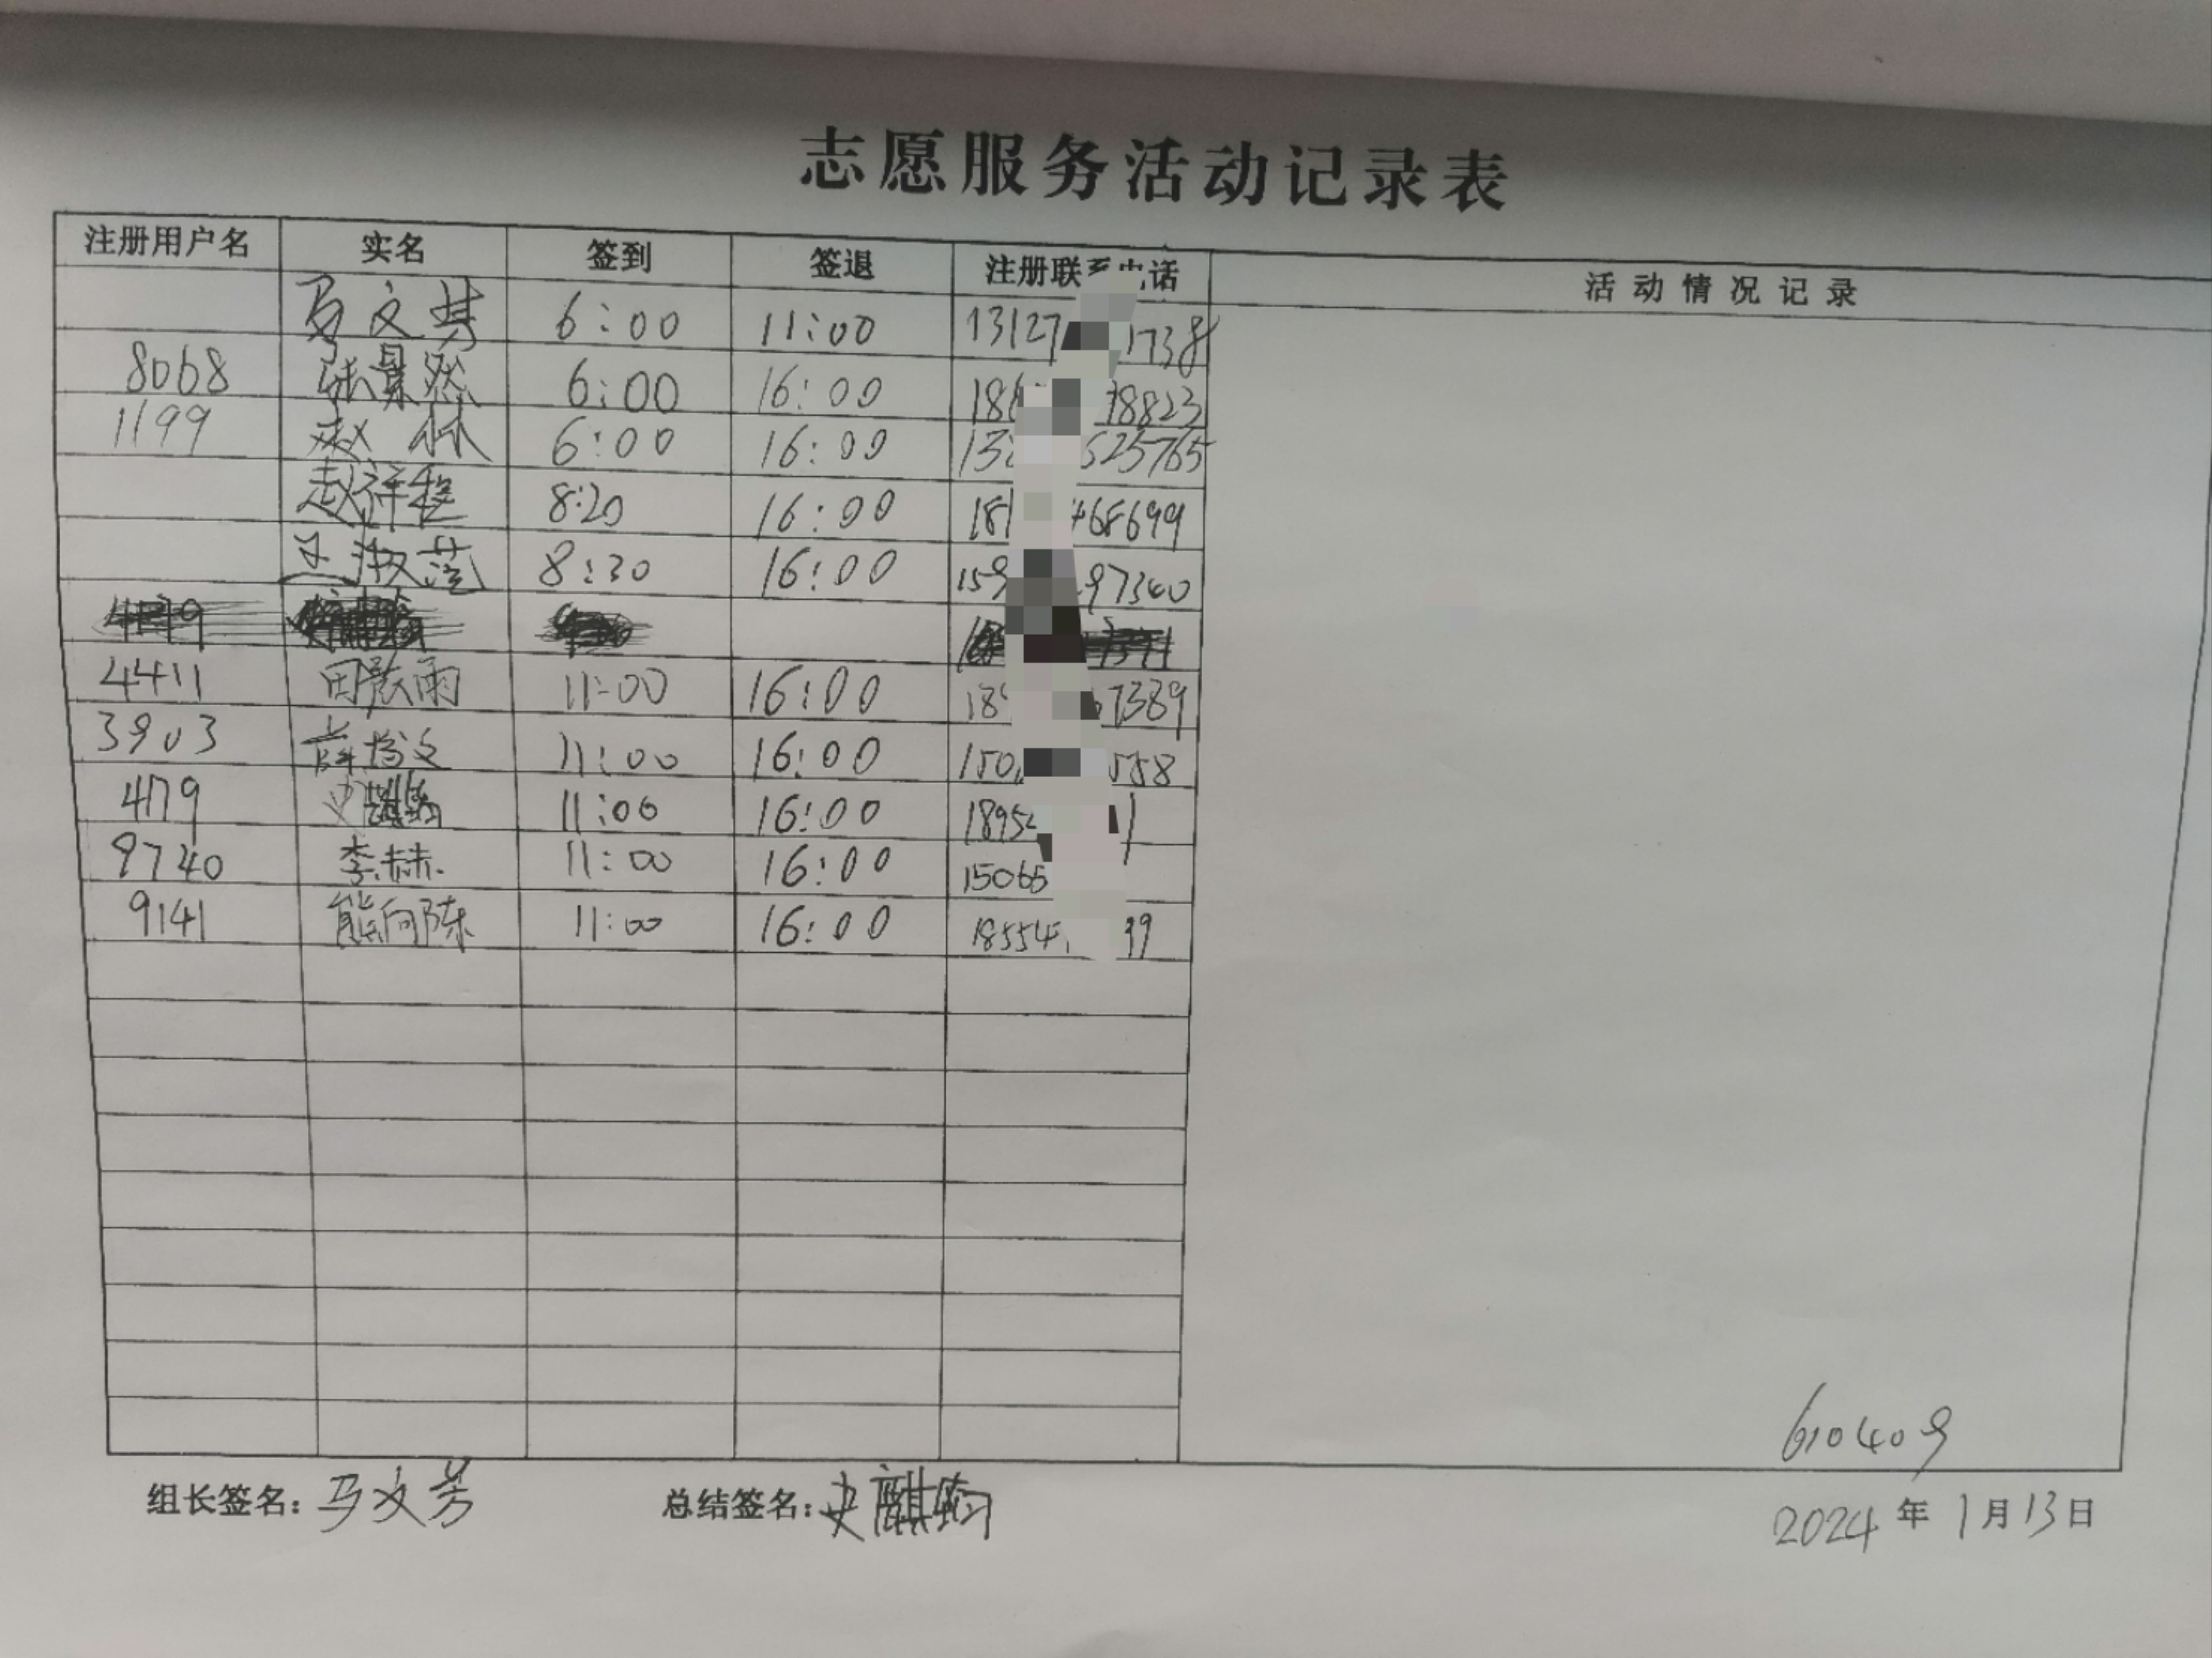 志愿服务活动记录表
注册用户名 实名 签到 签退 注册联系电话 活动情况记录
马文芳 6:00 11:00 13127 1738
8068 张景然 6:00 16:00 186 8823
1199 赵林 6:00 16:00 13 625765
赵祥程 8:20 16:00 181 468699
王淑莲 8:30 16:00 159 97340
4411 田宸雨 11:00 16:00 18 67389
3903 薛扬文 11:00 16:00 150 558
4179 史麒筠 11:00 16:00 1895 1
9740 李赫 11:00 16:00 15065
9141 熊向陈 11:00 16:00 18554 99
610409
组长签名: 马文芳 总结签名: 史麒筠 2024年1月13日